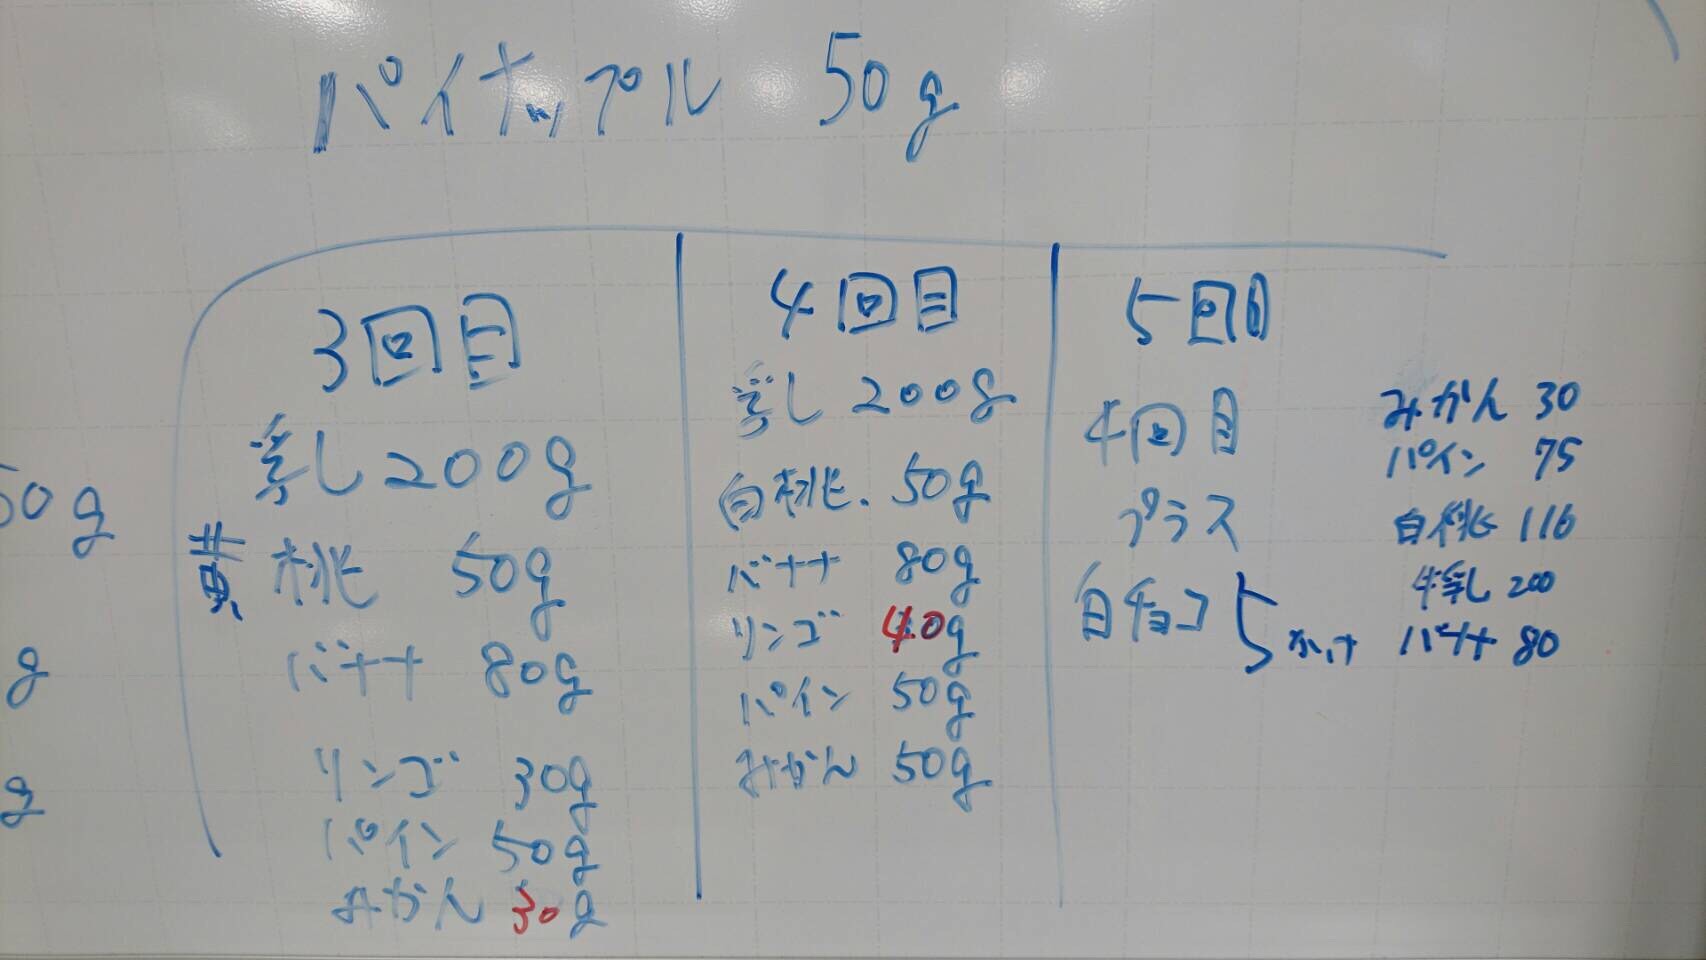 パイナップル 50g
50g
g
g
3回目
乳し 200g
黄桃 50g
バナナ 80g
リンゴ 30g
パイン 50g
みかん 30g
4回目
乳し 200g
白桃. 50g
バナナ 80g
リンゴ 40g
パイン 50g
みかん 50g
5回目
4回目
プラス
白チョコ 5
みかん 30
パイン 75
白桃 116
牛乳 200
バナナ 80